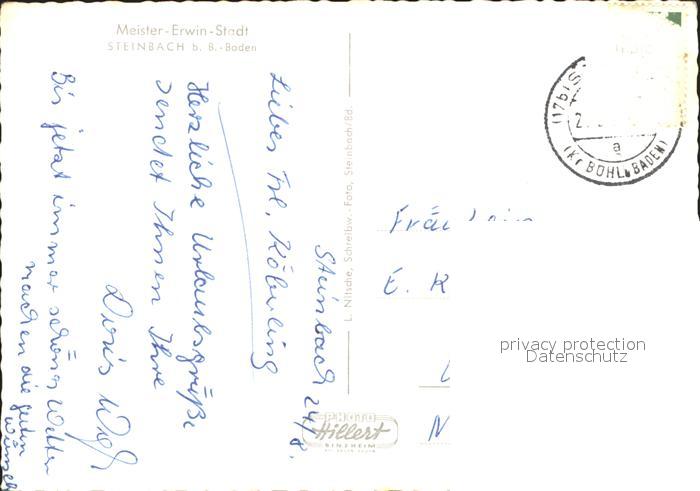 Meister-Erwin-Stadt
STEINBACH b. B.-Baden
Steinbach 24/8.
Liebes Frl. Köbuling
Herzliche Urlaubsgrüße
sendet Ihnen Ihre
Doris
Bis jetzt immer schönes Wetter
machen die guten
L. Nitsche, Schreibw.-Foto, Steinbach/Bd.
PHOTO
Hillert
SINZHEIM
(17b) S
2.
a
(Kr BÜHL, BADEN)
Fräulein
E. K
N
privacy protection
Datenschutz